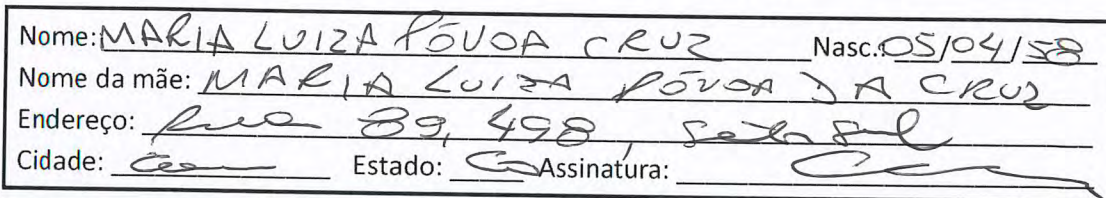 Nome: MARIA LUIZA PÓVOA CRUZ Nasc.: 05/04/58
Nome da mãe: MARIA LUIZA PÓVOA DA CRUZ
Endereço: Rua 89, 498, Setor Sul
Cidade: Estado: Go Assinatura: